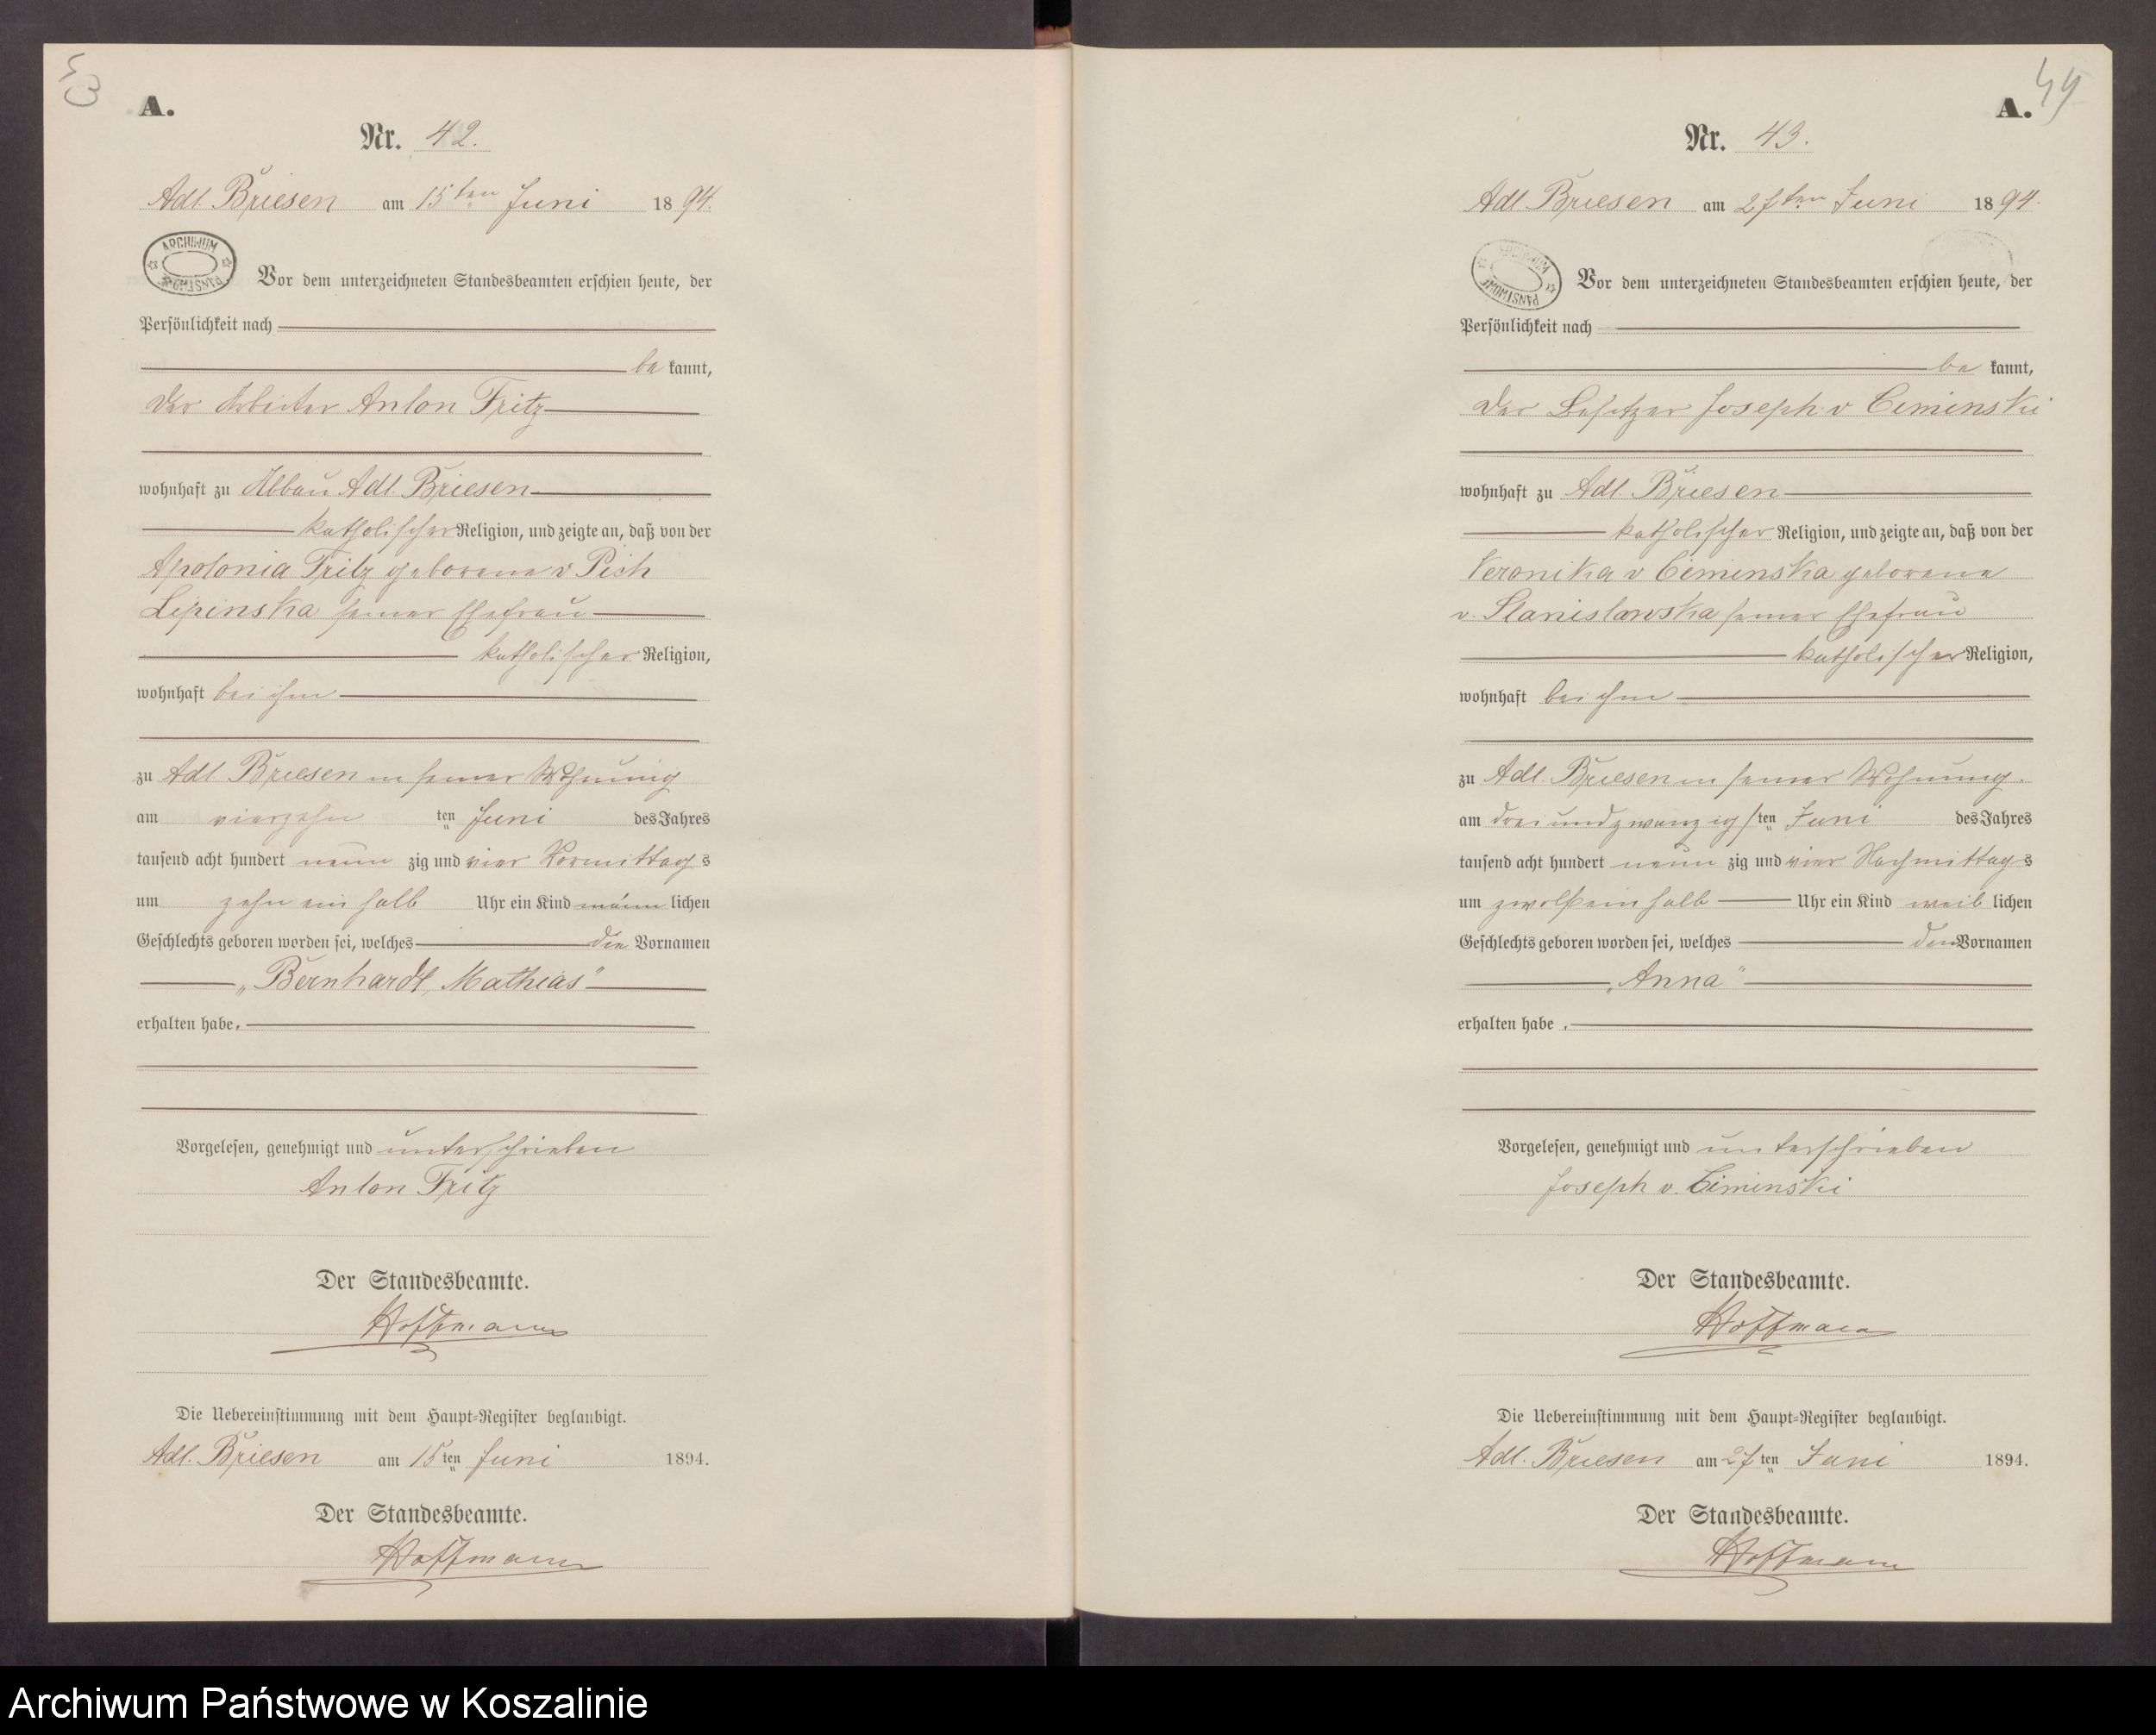 43
A.
Nr. 42.
Adl. Briesen am 15ten Juni 1894.
ARCHIWUM PAŃSTWOWE
Vor dem unterzeichneten Standesbeamten erschien heute, der
Persönlichkeit nach
be kannt,
der Arbeiter Anton Fritz
wohnhaft zu Abbau Adl. Briesen
katholischer Religion, und zeigte an, daß von der
Apolonia Fritz geborene v Pich
Lipinska seiner Ehefrau
katholischer Religion,
wohnhaft bei ihm
zu Adl. Briesen in seiner Wohnung
am vierzehn ten Juni des Jahres
tausend acht hundert neun zig und vier Vormittag s
um zehn ein halb Uhr ein Kind männ lichen
Geschlechts geboren worden sei, welches die Vornamen
„Bernhard, Mathias“
erhalten habe.
Vorgelesen, genehmigt und unterschrieben
Anton Fritz
Der Standesbeamte.
Hoffmann
Die Uebereinstimmung mit dem Haupt-Register beglaubigt.
Adl. Briesen am 15ten Juni 1894.
Der Standesbeamte.
Hoffmann
44
A.
Nr. 43.
Adl. Briesen am 27ten Juni 1894.
ARCHIWUM PAŃSTWOWE
Vor dem unterzeichneten Standesbeamten erschien heute, der
Persönlichkeit nach
be kannt,
der Besitzer Joseph v Ciminski
wohnhaft zu Adl. Briesen
katholischer Religion, und zeigte an, daß von der
Veronika v Ciminska geborene
v. Stanislawska seiner Ehefrau
katholischer Religion,
wohnhaft bei ihm
zu Adl. Briesen in seiner Wohnung.
am dreiundzwanzigsten Juni des Jahres
tausend acht hundert neun zig und vier Nachmittag s
um zwölf ein halb Uhr ein Kind weib lichen
Geschlechts geboren worden sei, welches den Vornamen
„Anna“
erhalten habe.
Vorgelesen, genehmigt und unterschrieben
Joseph v. Ciminski
Der Standesbeamte.
Hoffmann
Die Uebereinstimmung mit dem Haupt-Register beglaubigt.
Adl. Briesen am 27ten Juni 1894.
Der Standesbeamte.
Hoffmann
Archiwum Państwowe w Koszalinie